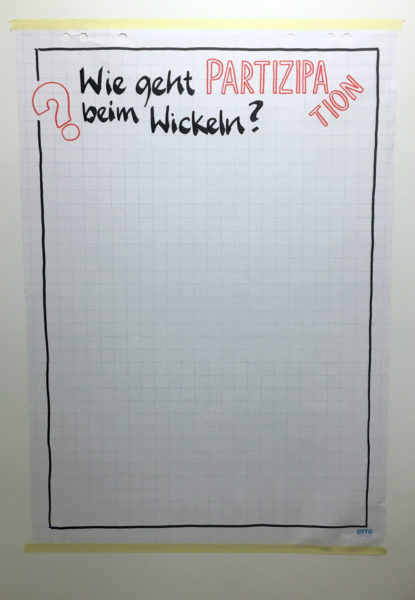 Wie geht PARTIZIPA
TION
beim Wickeln?
?
OTTO